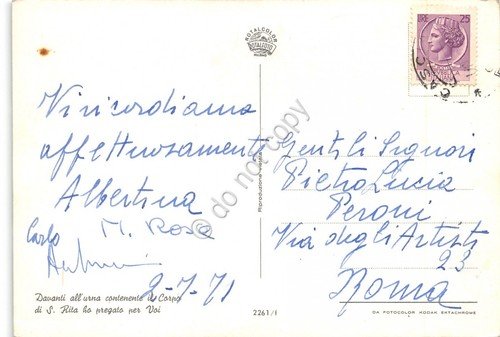 Vi ricordiamo
affettuosamente
Albertina
Carlo M. Rosa
2-7-71
Davanti all'urna contenente il Corpo
di S. Rita ho pregato per Voi
ROTALCOLOR
ROTALFOTO
MILANO
Riproduzione vietata
2261/1
25
CASC
Gentili Signori
Pietro Lucia
Peroni
Via degli Artisti
23
Roma
DA FOTOCOLOR KODAK EKTACHROME
© do not copy